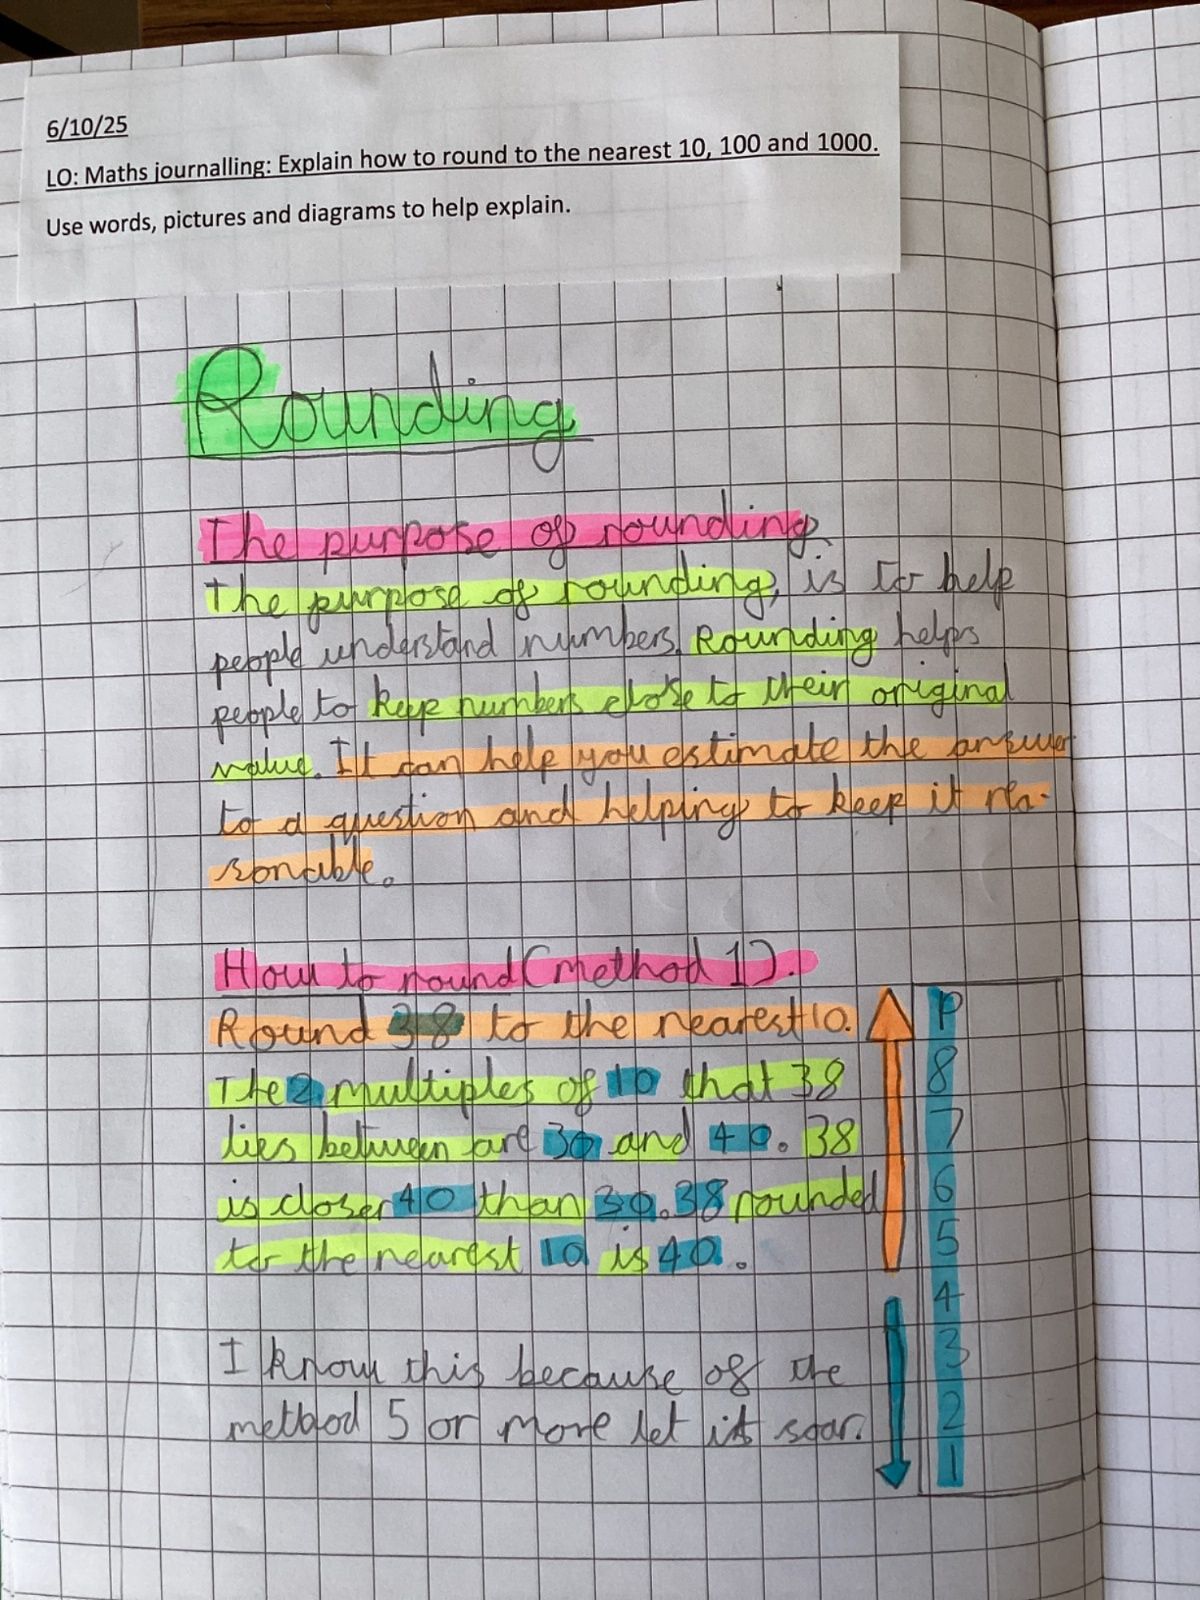 6/10/25
LO: Maths journalling: Explain how to round to the nearest 10, 100 and 1000.
Use words, pictures and diagrams to help explain.
Rounding
The purpose of rounding
The purpose of rounding, is to help
people understand numbers. Rounding helps
people to keep numbers close to their original
value. It can help you estimate the answer
to a question and helping to keep it rea-
sonable.
How to round (method 1).
Round 38 to the nearest 10.
The 2 multiples of 10 that 38
lies between are 30 and 40. 38
is closer 40 than 30. 38 rounded
to the nearest 10 is 40.
I know this because of the
method 5 or more let it soar.
9
8
7
6
5
4
3
2
1